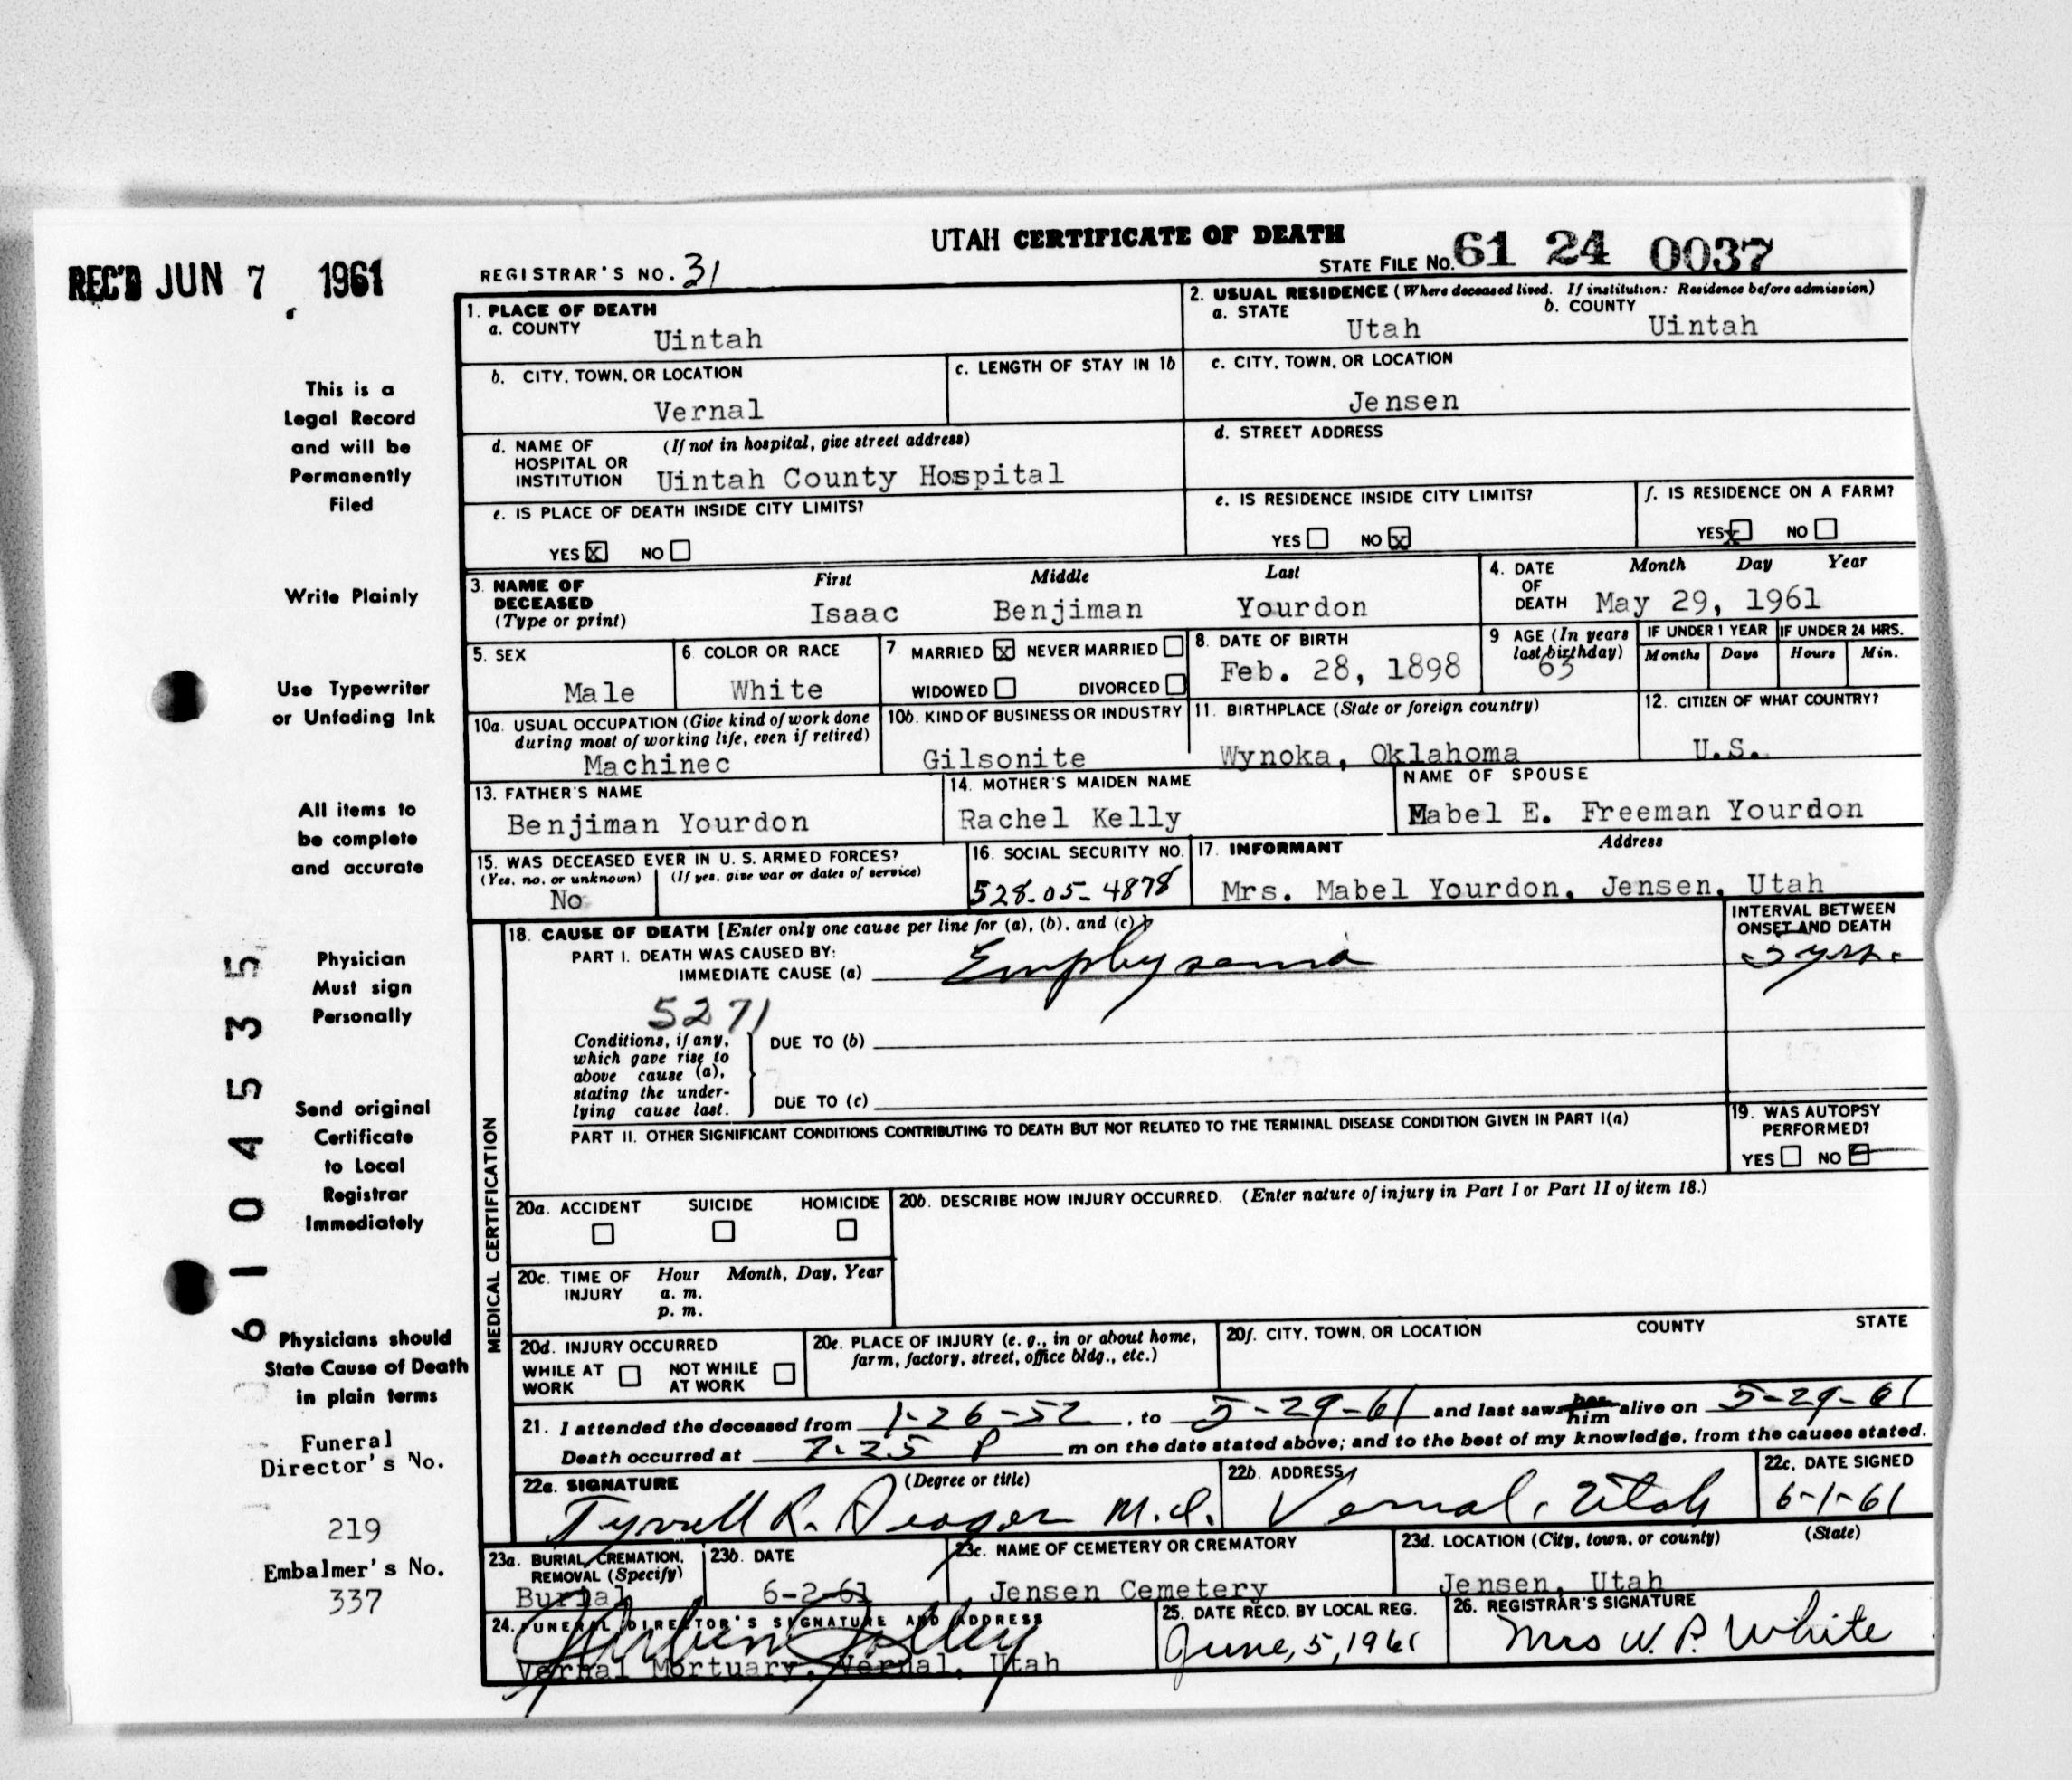 UTAH CERTIFICATE OF DEATH
REC'D JUN 7 1961
REGISTRAR'S NO. 31
STATE FILE NO. 61 24 0037
This is a
Legal Record
and will be
Permanently
Filed
Write Plainly
Use Typewriter
or Unfading Ink
All items to
be complete
and accurate
Physician
Must sign
Personally
Send original
Certificate
to Local
Registrar
Immediately
Physicians should
State Cause of Death
in plain terms
Funeral
Director's No.
219
Embalmer's No.
337
61045335
1. PLACE OF DEATH
a. COUNTY
Uintah
2. USUAL RESIDENCE (Where deceased lived. If institution: Residence before admission)
a. STATE b. COUNTY
Utah Uintah
b. CITY, TOWN, OR LOCATION
Vernal
c. LENGTH OF STAY IN 1b
c. CITY, TOWN, OR LOCATION
Jensen
d. NAME OF (If not in hospital, give street address)
HOSPITAL OR
INSTITUTION Uintah County Hospital
d. STREET ADDRESS
e. IS PLACE OF DEATH INSIDE CITY LIMITS?
YES X NO
e. IS RESIDENCE INSIDE CITY LIMITS?
YES NO X
f. IS RESIDENCE ON A FARM?
YES X NO
3. NAME OF DECEASED (Type or print)
First Middle Last
Isaac Benjiman Yourdon
4. DATE OF DEATH
Month Day Year
May 29, 1961
5. SEX
Male
6. COLOR OR RACE
White
7 MARRIED X NEVER MARRIED
WIDOWED DIVORCED
8. DATE OF BIRTH
Feb. 28, 1898
9 AGE (In years last birthday)
63
IF UNDER 1 YEAR
Months Days
IF UNDER 24 HRS.
Hours Min.
10a. USUAL OCCUPATION (Give kind of work done
during most of working life, even if retired)
Machinec
10b. KIND OF BUSINESS OR INDUSTRY
Gilsonite
11. BIRTHPLACE (State or foreign country)
Wynoka, Oklahoma
12. CITIZEN OF WHAT COUNTRY?
U.S.
13. FATHER'S NAME
Benjiman Yourdon
14. MOTHER'S MAIDEN NAME
Rachel Kelly
NAME OF SPOUSE
Mabel E. Freeman Yourdon
15. WAS DECEASED EVER IN U. S. ARMED FORCES?
(Yes, no, or unknown) (If yes, give war or dates of service)
No
16. SOCIAL SECURITY NO.
528-05-4878
17. INFORMANT Address
Mrs. Mabel Yourdon, Jensen, Utah
MEDICAL CERTIFICATION
18. CAUSE OF DEATH [Enter only one cause per line for (a), (b), and (c)]
PART I. DEATH WAS CAUSED BY:
IMMEDIATE CAUSE (a) Emphysema
INTERVAL BETWEEN
ONSET AND DEATH
5 yrs.
5271
Conditions, if any,
which gave rise to
above cause (a),
stating the under-
lying cause last.
DUE TO (b)
DUE TO (c)
PART II. OTHER SIGNIFICANT CONDITIONS CONTRIBUTING TO DEATH BUT NOT RELATED TO THE TERMINAL DISEASE CONDITION GIVEN IN PART I(a)
19. WAS AUTOPSY
PERFORMED?
YES NO
20a. ACCIDENT SUICIDE HOMICIDE
20b. DESCRIBE HOW INJURY OCCURRED. (Enter nature of injury in Part I or Part II of item 18.)
20c. TIME OF INJURY
Hour Month, Day, Year
a. m.
p. m.
20d. INJURY OCCURRED
WHILE AT WORK NOT WHILE AT WORK
20e. PLACE OF INJURY (e. g., in or about home,
farm, factory, street, office bldg., etc.)
20f. CITY, TOWN, OR LOCATION COUNTY STATE
21. I attended the deceased from 1-26-52, to 5-29-61 and last saw her him alive on 5-29-61
Death occurred at 7:25 P m on the date stated above; and to the best of my knowledge, from the causes stated.
22a. SIGNATURE (Degree or title)
Tyrrell R. Seager M.D.
22b. ADDRESS
Vernal, Utah
22c. DATE SIGNED
6-1-61
23a. BURIAL, CREMATION,
REMOVAL (Specify)
Burial
23b. DATE
6-2-61
23c. NAME OF CEMETERY OR CREMATORY
Jensen Cemetery
23d. LOCATION (City, town, or county) (State)
Jensen, Utah
24. FUNERAL DIRECTOR'S SIGNATURE AND ADDRESS
Vernal Mortuary, Vernal, Utah
25. DATE RECD. BY LOCAL REG.
June, 5, 1961
26. REGISTRAR'S SIGNATURE
Mrs W. P. White